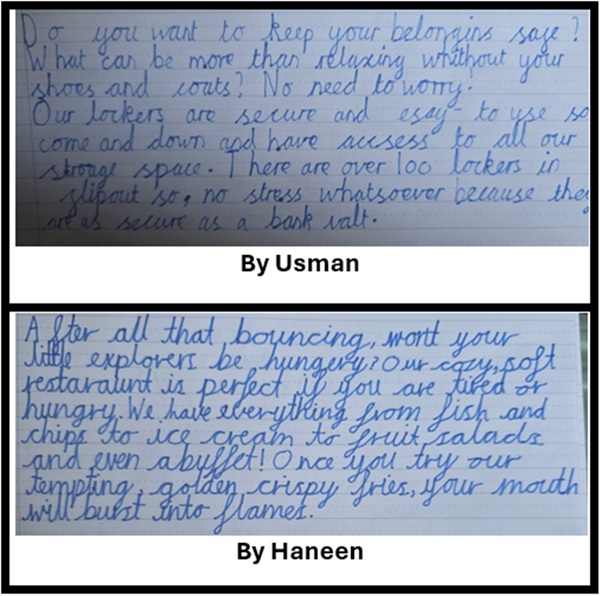 Do you want to keep your belongins saye?
What can be more than relaxing whithout your
shoes and couts? No need to worry.
Our lockers are secure and esay to use so
come and down and have acssess to all our
stroage space. There are over 100 lockers in
flipout so, no stress whatsoever because they
are as secure as a bank valt.
By Usman
After all that bouncing, wont your
little explorers be hungery? Our cozy, soft
restaraunt is perfect if you are tired or
hungry. We have everything from fish and
chips to ice cream to fruit salads
and even a buffet! Once you try our
tempting, golden, crispy fries, your mouth
will burst into flames.
By Haneen